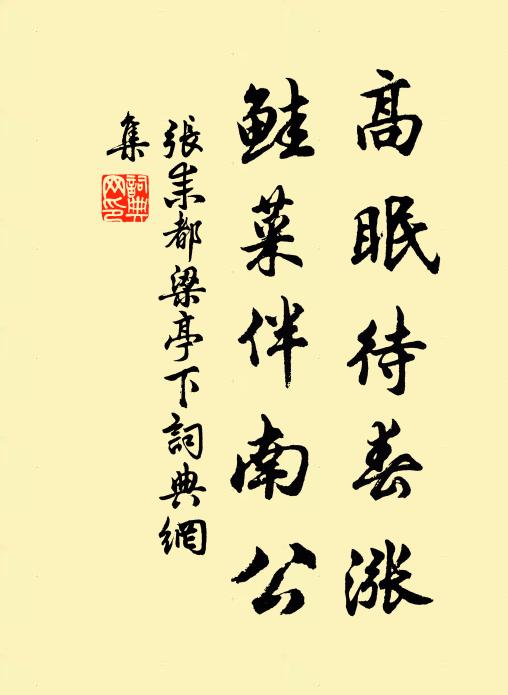 高眠待春漲
鮭菜伴南公
張耒都梁亭下詞典網
集
詞典
网印